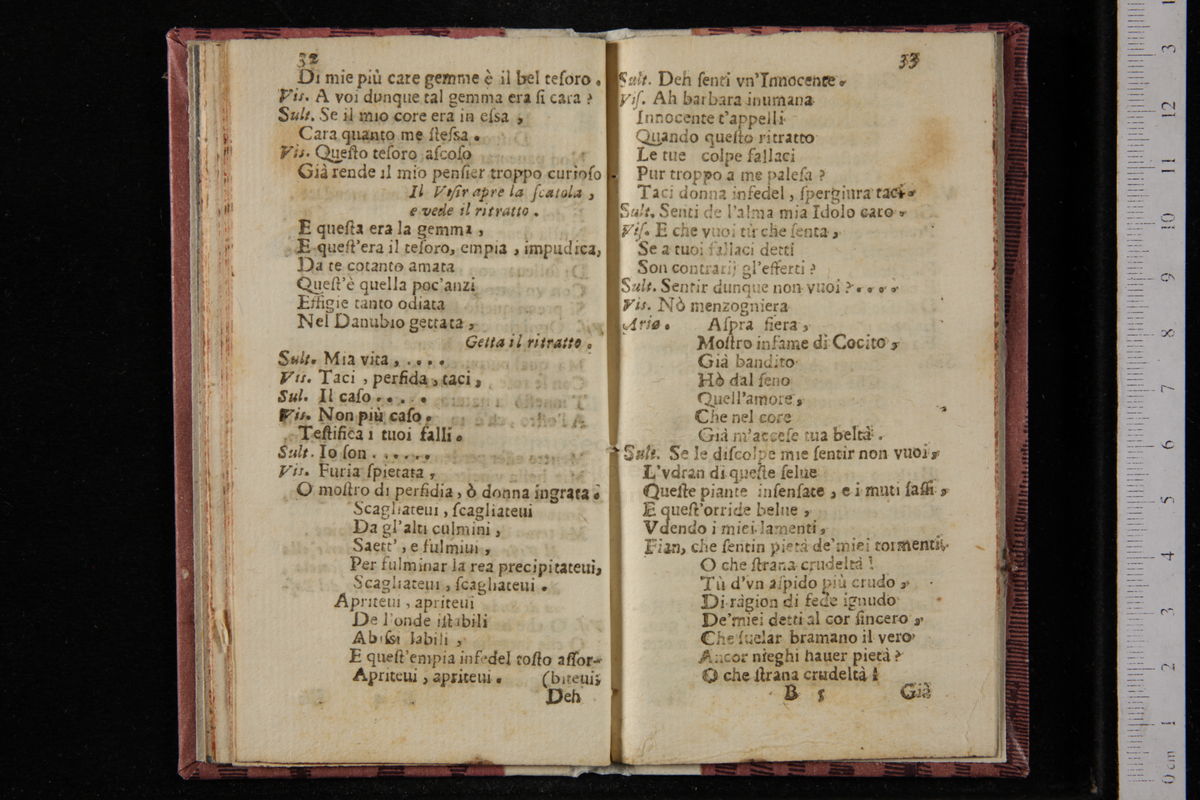 32
Di mie più care gemme è il bel teſoro.
Vis. A voi dunque tal gemma era ſi cara?
Sult. Se il mio core era in eſsa,
Cara quanto me ſteſsa.
Vis. Queſto teſoro aſcoſo
Già rende il mio penſier troppo curioſo.
Il Viſir apre la ſcatola,
e vede il ritratto.
E queſta era la gemma,
E queſt'era il teſoro, empia, impudica,
Da te cotanto amata
Queſt'è quella poc'anzi
Effigie tanto odiata
Nel Danubio gettata,
Getta il ritratto.
Sult. Mia vita, ....
Vis. Taci, perfida, taci,
Sul. Il caſo.....
Vis. Non più caſo.
Teſtifica i tuoi falli.
Sult. Io ſon......
Vis. Furia ſpietata,
O moſtro di perfidia, ò donna ingrata.
Scagliateui, ſcagliateui
Da gl'alti culmini,
Saett', e fulmini,
Per fulminar la rea precipitateui,
Scagliateui, ſcagliateui.
Apriteui, apriteui
De l'onde iſtabili
Abiſsi labili,
E queſt'empia infedel toſto aſſor-
Apriteui, apriteui. (biteui;
Deh
33
Sult. Deh ſenti vn'Innocente.
Viſ. Ah barbara inumana
Innocente t'appelli
Quando queſto ritratto
Le tue colpe fallaci
Pur troppo a me paleſa?
Taci donna infedel, ſpergiura taci.
Sult. Senti de l'alma mia Idolo caro.
Viſ. E che vuoi tù che ſenta,
Se a tuoi fallaci detti
Son contrarij gl'effetti?
Sult. Sentir dunque non vuoi?....
Vis. Nò menzogniera
Aria. Aſpra fiera,
Moſtro infame di Cocito,
Già bandito
Hò dal ſeno
Quell'amore,
Che nel core
Già m'acceſe tua beltà.
Sult. Se le diſcolpe mie ſentir non vuoi,
L'vdran di queſte ſelue
Queſte piante inſenſate, e i muti ſaſſi,
E queſt'orride belue,
Vdendo i miei lamenti,
Fian, che ſentin pietà de'miei tormenti.
O che ſtrana crudeltà!
Tù d'vn aſpido più crudo,
Di ragion di fede ignudo
De'miei detti al cor ſincero,
Che ſuelar bramano il vero
Ancor nieghi hauer pietà?
O che ſtrana crudeltà!
B 5 Già
3
12
11
10
9
8
7
6
5
4
3
2
1
0 cm